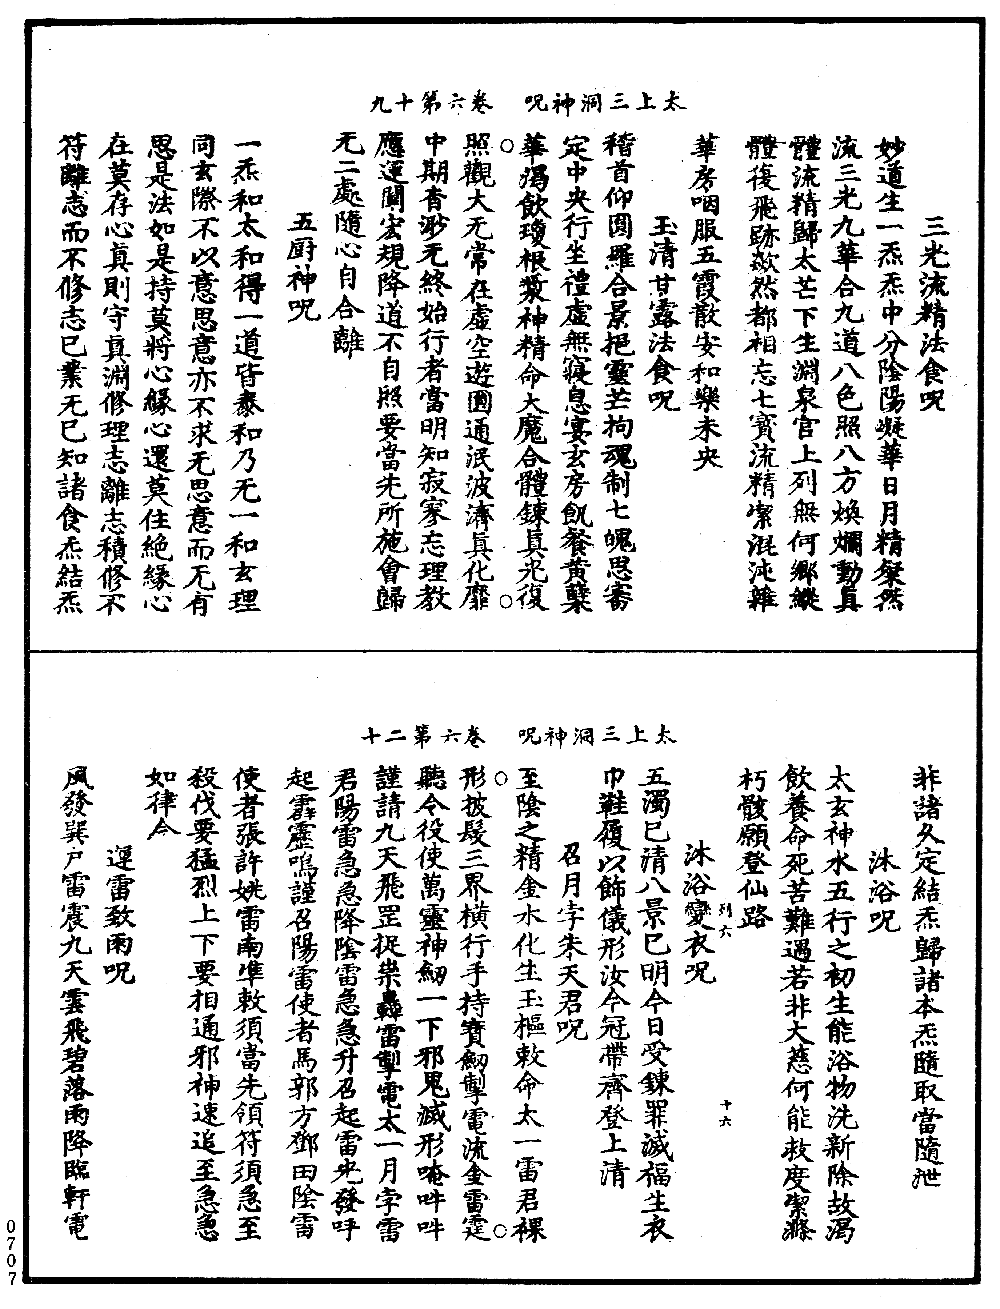 太上三洞神呪　卷六第十九
三光流精法食呪
妙道生一炁炁中分陰陽凝華日月精粲然
流三光九華合九道八色照八方煥爛動真
體流精歸太芒下生淵泉官上列無何鄉縱
體復飛跡欻然都相忘七寶流精潔混沌雜
華房咽服五霞散安和樂未央
玉清甘露法食呪
稽首仰圓羅合景挹靈芒拘魂制七魄思審
定中央行坐禮虛無寢息宴玄房飢餐黄蘗
華渴飲瓊根漿神精命大魔合體鍊真光復
照觀大无常在虛空遊圓通泯波濟真化靡
中期杳渺无終始行者當明知寂寥忘理教
應運闡宏規降道不自眖要當先所施會歸
无二處隨心自合離
五廚神呪
一炁和太和得一道皆泰和乃无一和玄理
同玄際不以意思意亦不求无思意而无有
思是法如是持莫將心緣心還莫住絶緣心
在莫存心真則守真淵修理志離志積修不
符離志而不修志已業无已知諸食炁結炁
太上三洞神呪　卷六第二十
非諸久定結炁歸諸本炁隨取當隨泄
沐浴呪
太玄神水五行之初生能浴物洗新除故渴
飲養命死苦難遇若非大慈何能救度潔滌
朽骸願登仙路
列六
十六
沐浴變衣呪
五濁已清八景已明今日受鍊罪滅福生衣
巾鞋履以飾儀形汝今冠帶齊登上清
召月孛朱天君呪
至陰之精金水化生玉樞敕命太一雷君裸
形披髮三界横行手持寶劒掣電流金雷霆
聽令役使萬靈神劒一下邪鬼滅形唵吽吽
謹請九天飛罡捉祟轟雷掣電太一月孛雷
君陽雷急急降陰雷急急升召起雷光發呼
起霹靂鳴謹召陽雷使者馬郭方鄧田陰雷
使者張許姚雷南准敕須當先領符須急至
殺伐要猛烈上下要相通邪神速追至急急
如律令
運雷致雨呪
風發巽戶雷震九天雲飛碧落雨降臨軒電
0707